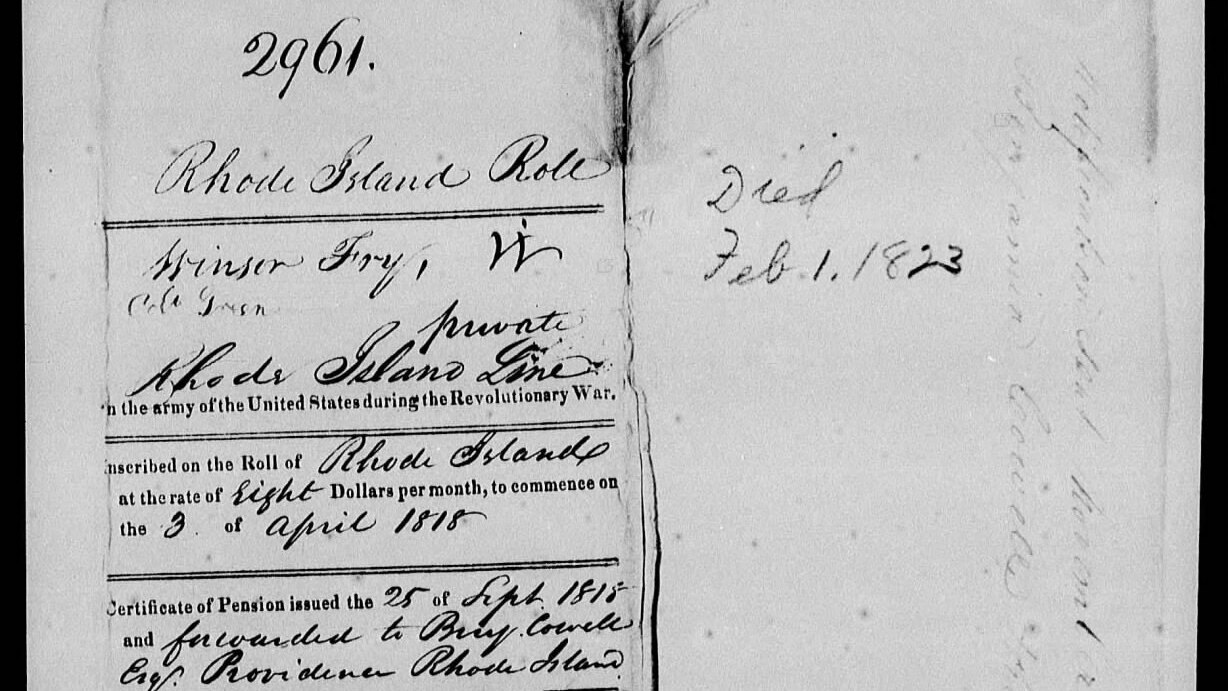 2961.
Rhode Island Role
Winsor Fry, W
Colo Green
private
Rhode Island Line
n the army of the United States during the Revolutionary War.
nscribed on the Roll of Rhode Island
at the rate of Eight Dollars per month, to commence on
the 3 of April 1818
Certificate of Pension issued the 25 of Sept. 1818
and forwarded to Benj. Cowell
Esqr. Providence Rhode Island
Died
Feb. 1. 1823